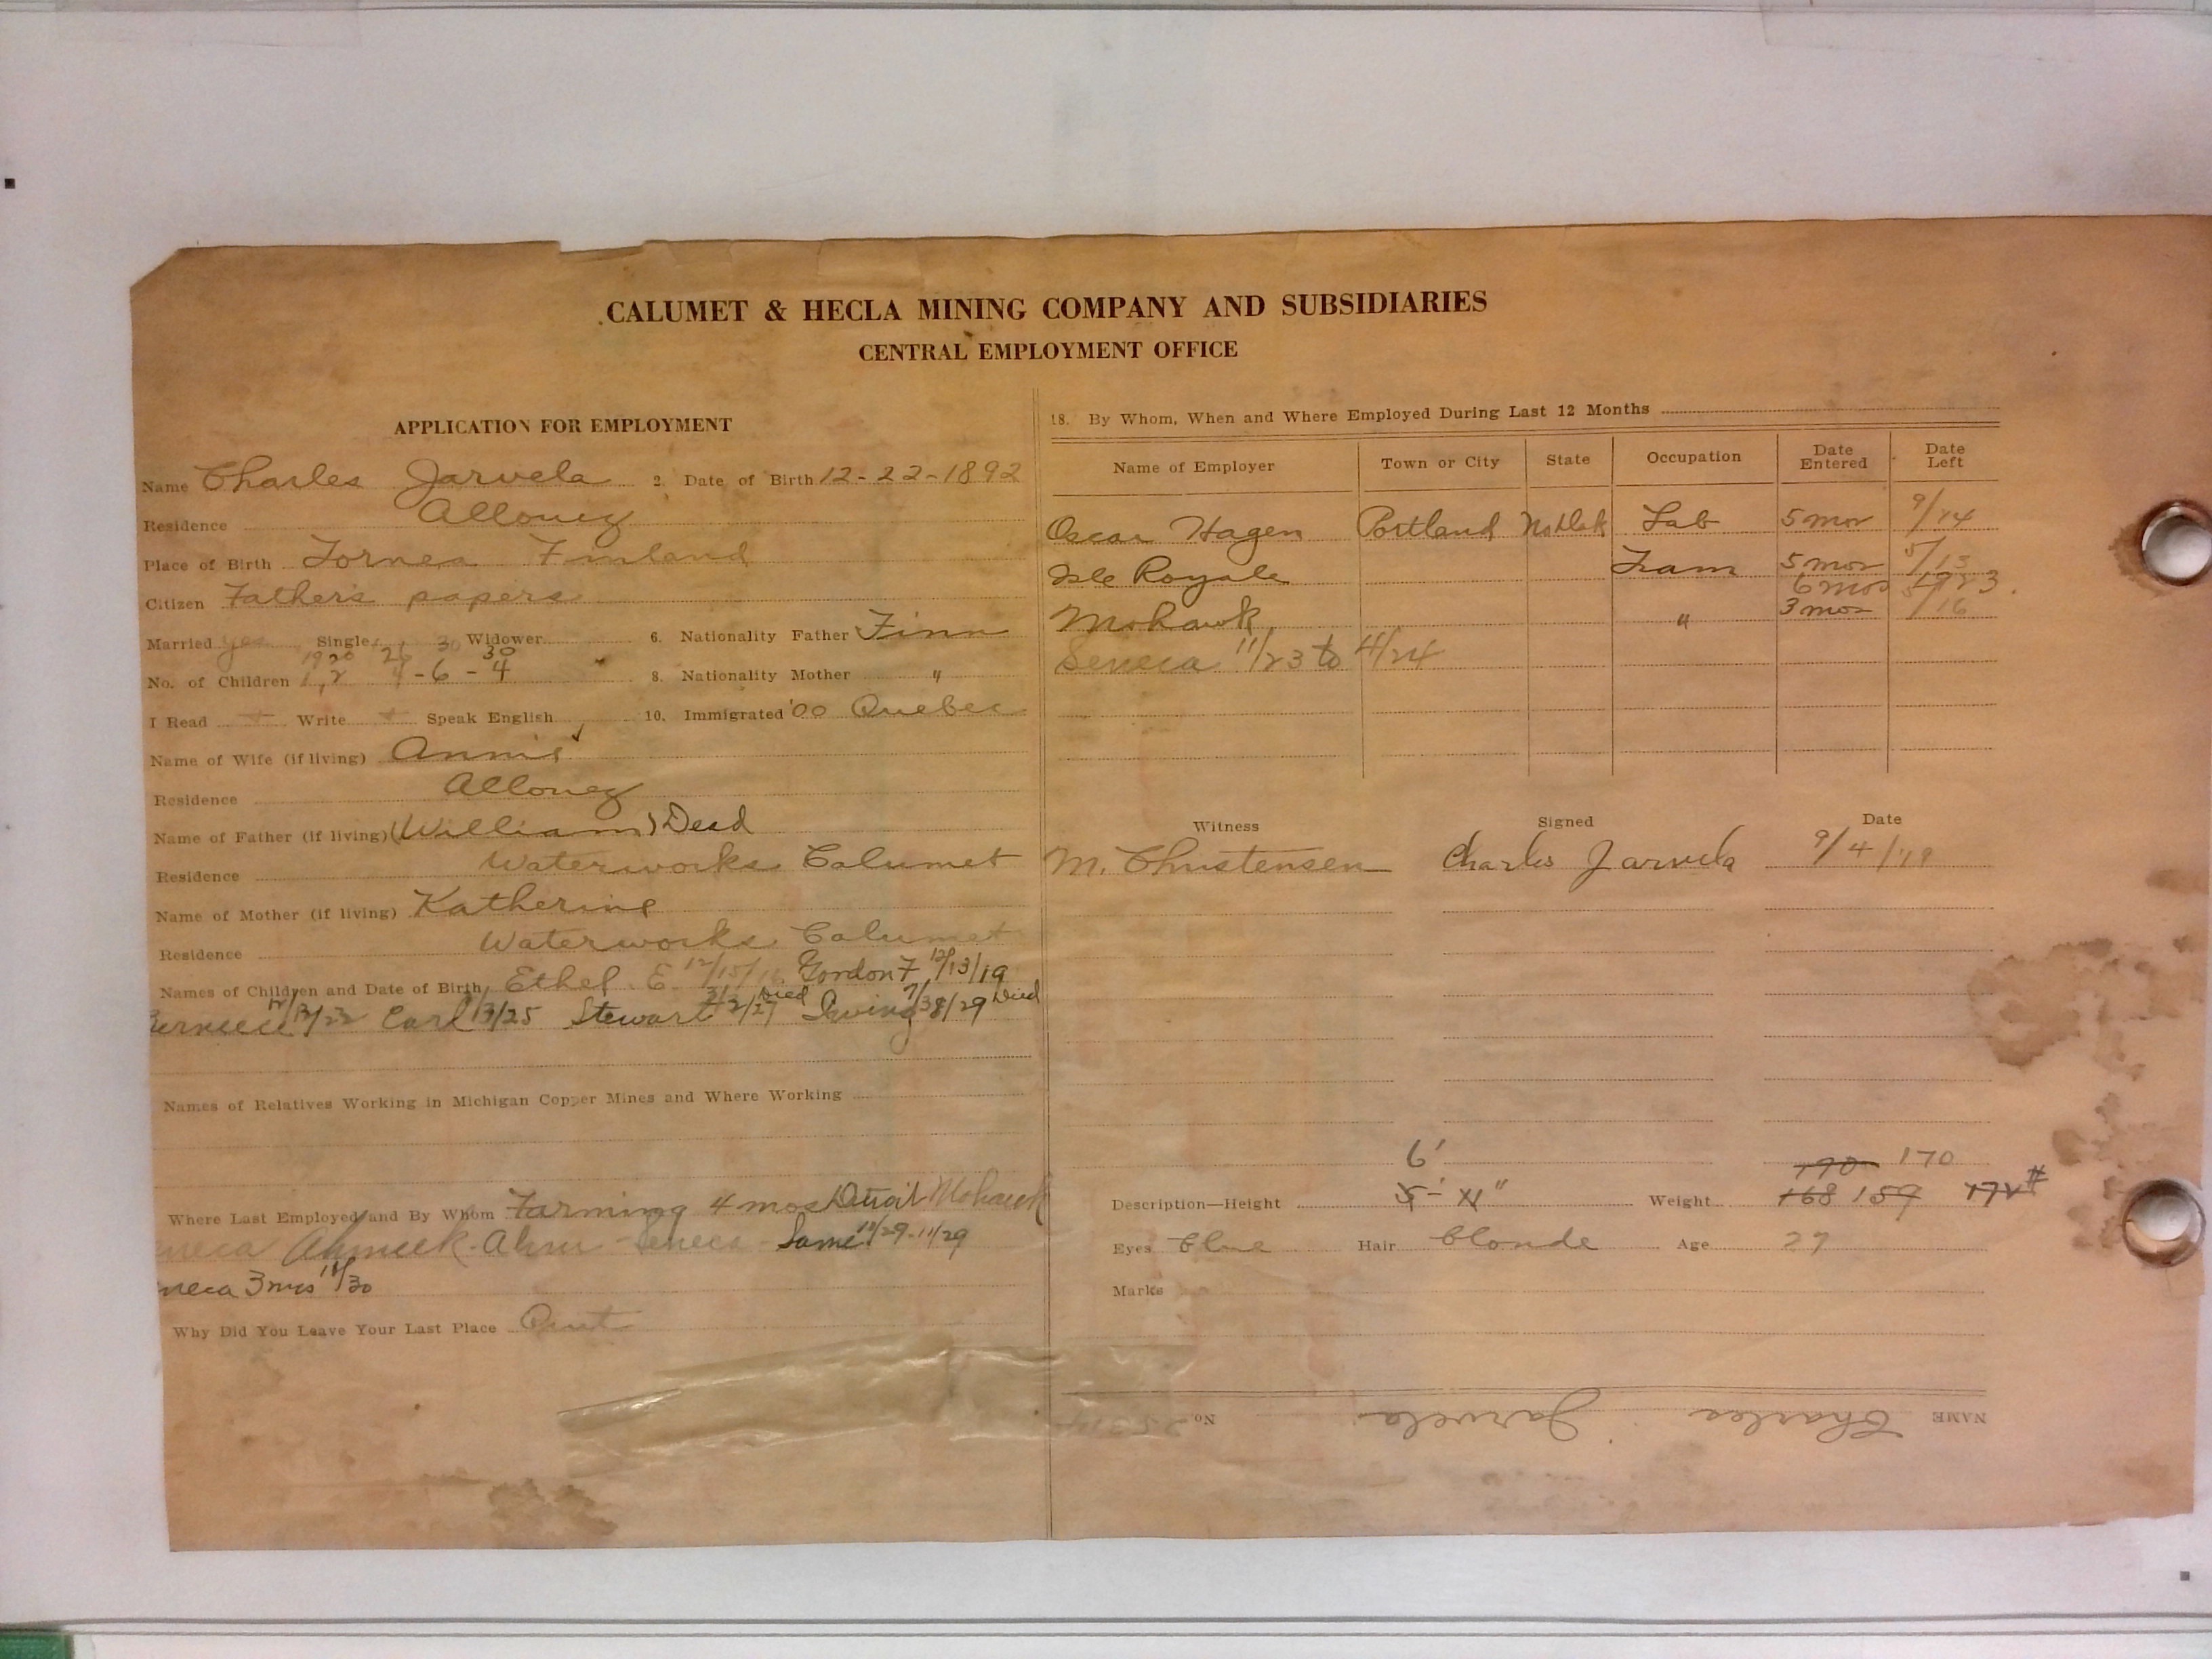 CALUMET & HECLA MINING COMPANY AND SUBSIDIARIES
CENTRAL EMPLOYMENT OFFICE
APPLICATION FOR EMPLOYMENT
Name Charles Jarvela 2. Date of Birth 12-22-1892
Residence Allouez
Place of Birth Tornea Finland
Citizen Father's papers
Married yes Single 30 Widower 6. Nationality Father Finn
1920 26 30
No. of Children 1, 2 4 - 6 - 4 8. Nationality Mother "
I Read + Write + Speak English 10. Immigrated '00 Quebec
Name of Wife (if living) Annie
Residence Allouez
Name of Father (if living) (William) Dead
Residence Waterworks Calumet
Name of Mother (if living) Katherine
Residence Waterworks Calumet
Names of Children and Date of Birth Ethel E. 12/15/16 Gordon F 12/13/19
Earl 3/25 Stewart Died Irving Died
Names of Relatives Working in Michigan Copper Mines and Where Working
Where Last Employed and By Whom Farming 4 mos Detroit Mohawk
neca Ahmeek - Ahm - Seneca - Same 11/29
neca 3 mos 11/30
Why Did You Leave Your Last Place Quit
18. By Whom, When and Where Employed During Last 12 Months
Name of Employer Town or City State Occupation Date Entered Date Left
Oscar Hagen Portland No Dak Lab 5 mos 9/14
Isle Royale Tram 5 mos 5/13
6 mos 1923.
Mohawk " 3 mos /16
Seneca 11/23 to 4/24
Witness Signed Date
M. Christensen Charles Jarvela 9/4/19
6' 190 170
Description—Height 5' 11" Weight 168 159 172#
Eyes Blue Hair Blonde Age 27
Marks
NAME Charles Jarvela No.